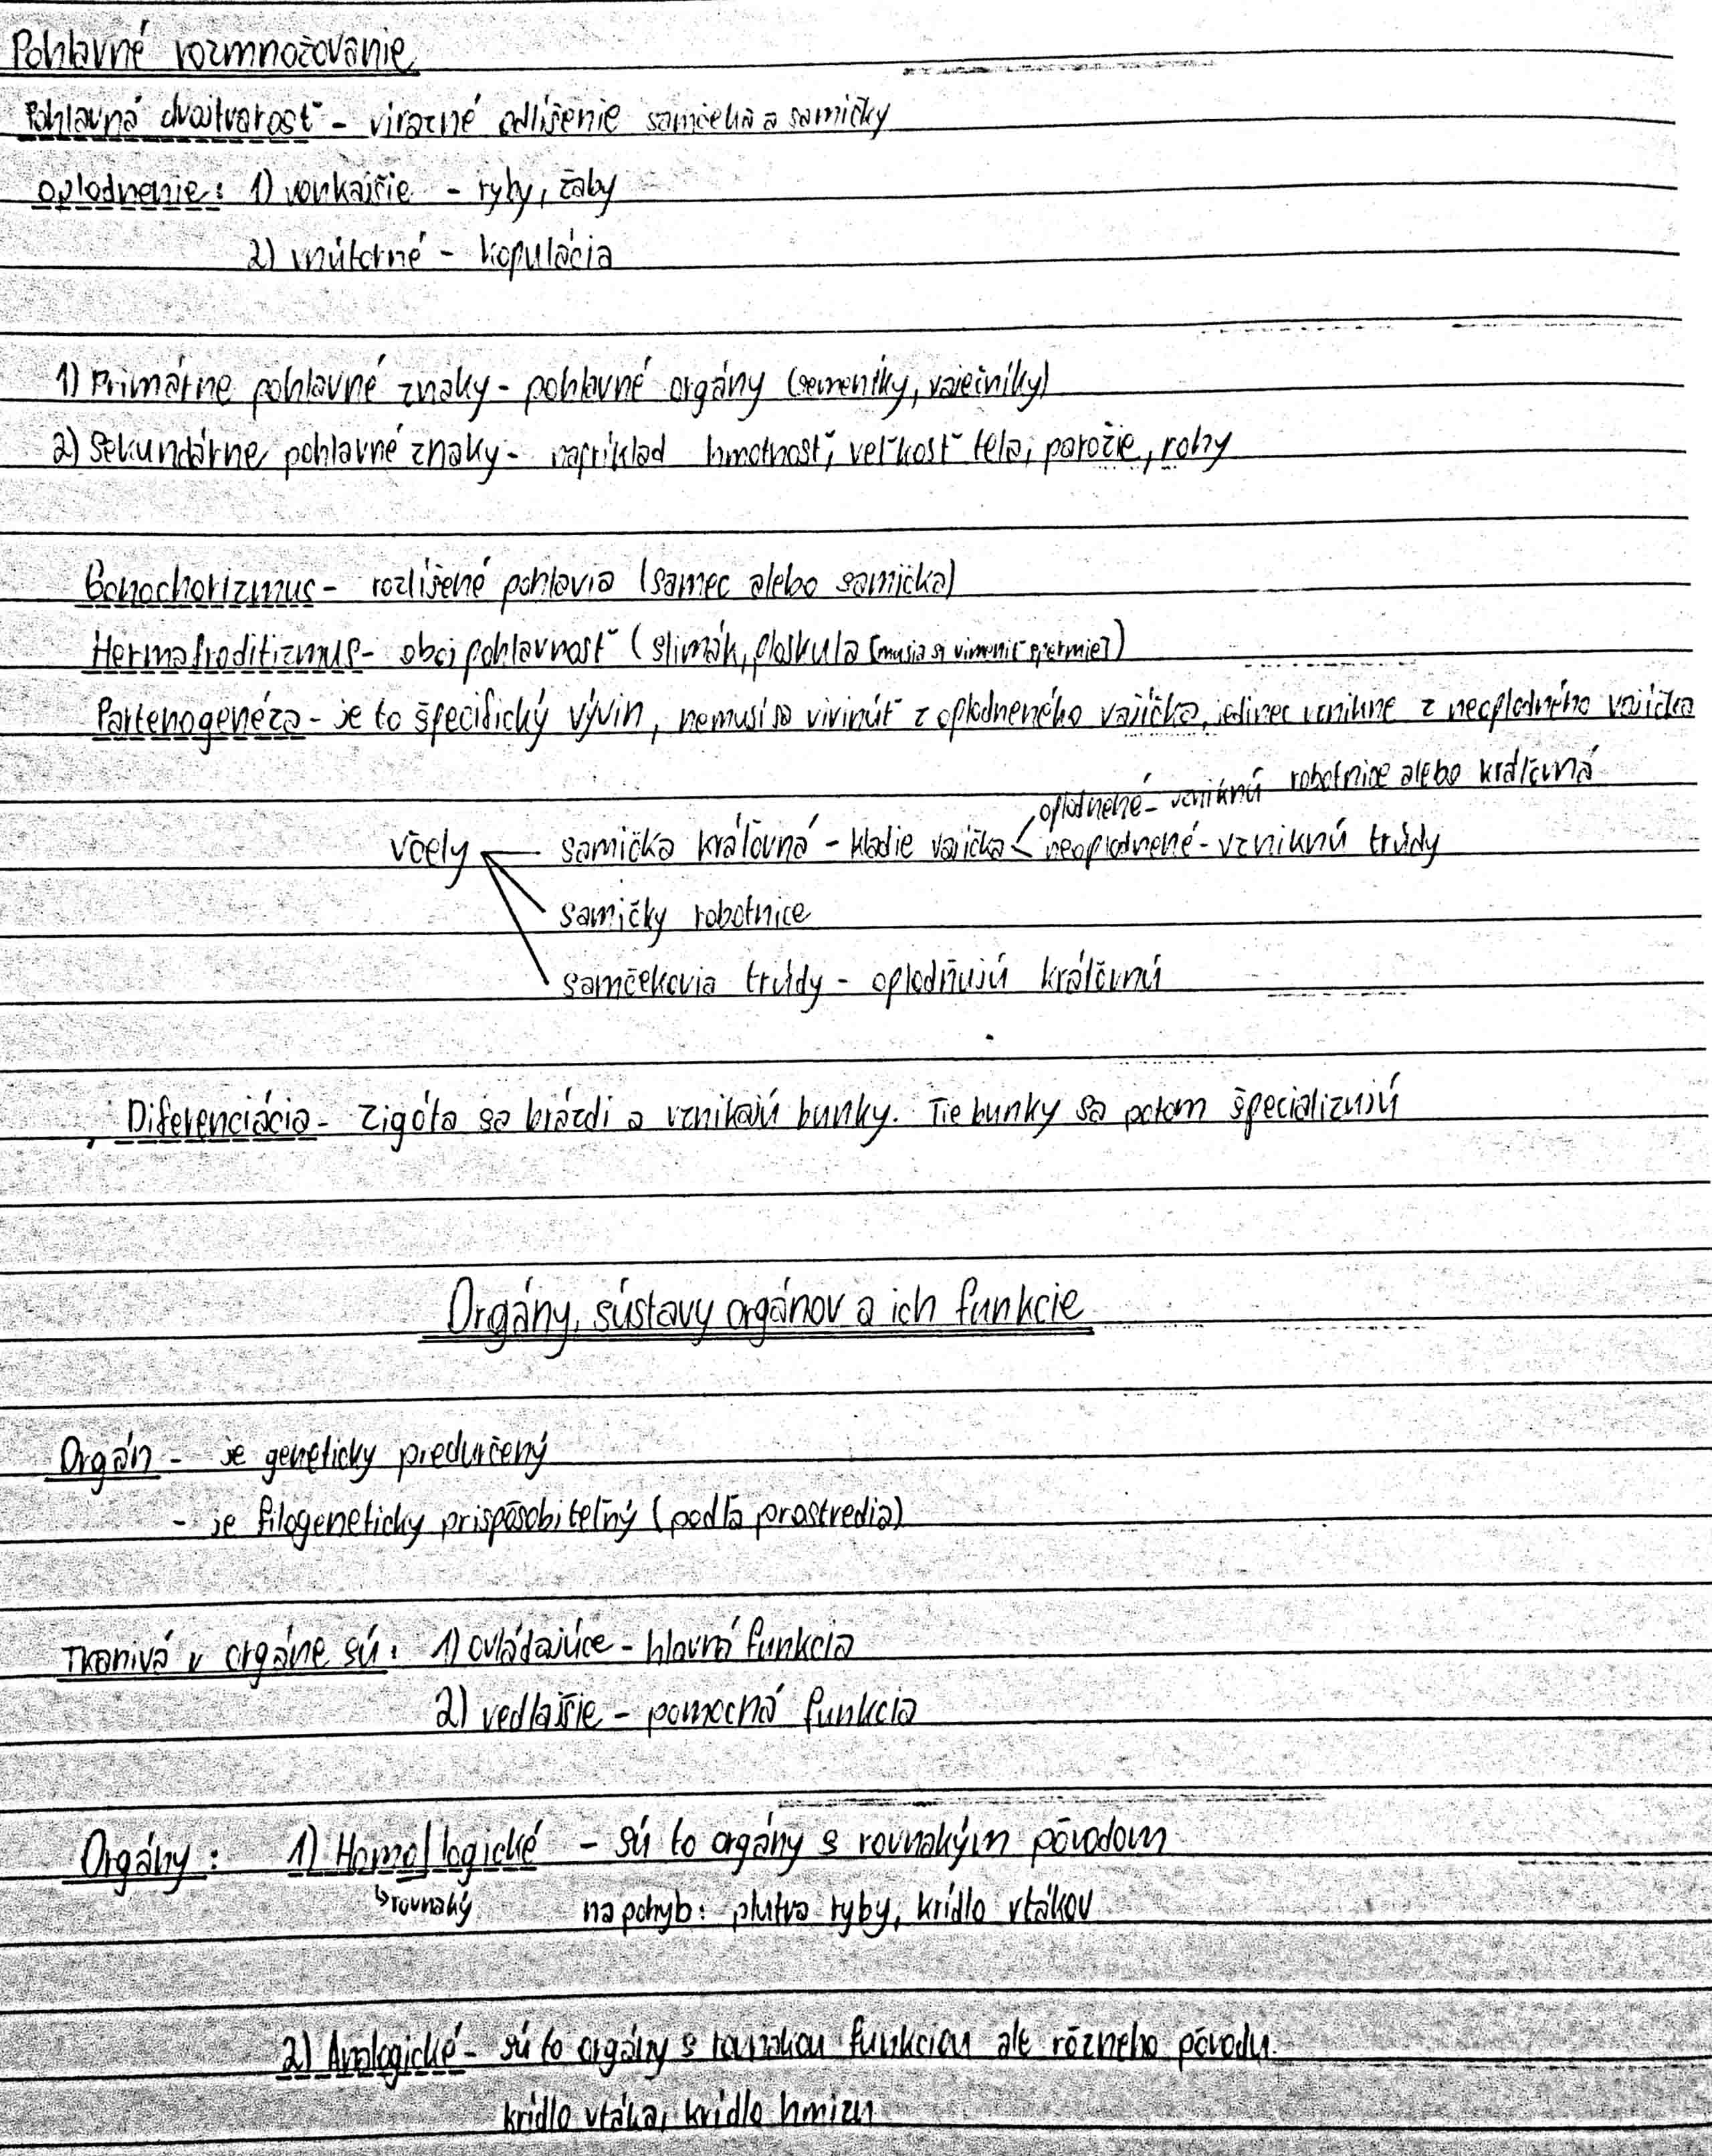 Pohlavné rozmnožovanie
Pohlavná dvojtvarosť - virazné odlišenie samčeka a samičky
oplodnenie: 1) vonkajšie - ryby, žaby
2) vnútorné - kopulácia
1) Primárne pohlavné znaky - pohlavné orgány (semeníky, vaječníky)
2) Sekundárne pohlavné znaky - napríklad hmotnosť, veľkosť tela, parožie, rohy
Gonochorizmus - rozlišené pohlavia (samec alebo samička)
Hermafroditizmus - obojpohlavnosť (slimák, ploskula [musia si vimeniť spermie])
Partenogenéza - je to špecifický vývin, nemusí sa vivinúť z oplodneného vajíčka, jedinec vznikne z neoplodného vajíčka
oplodnené - vzniknú robotnice alebo kráľovná
včely samička kráľovná - kladie vajíčka < neoplodnené - vzniknú trúdy
samičky robotnice
samčekovia trúdy - oplodňujú kráľovnú
Diferenciácia - zigóta sa brázdi a vznikajú bunky. Tie bunky sa potom špecializujú
Orgány, sústavy orgánov a ich funkcie
Orgán - je geneticky predurčený
- je filogeneticky prispôsobiteľný (podľa prostredia)
Tkanivá v orgáne sú: 1) ovládajúce - hlavná funkcia
2) vedlajšie - pomocná funkcia
Orgány: 1) Homo|logické - sú to orgány s rovnakým pôvodom
↳ rovnaký na pohyb: plutva ryby, krídlo vtákov
2) Analogické - sú to orgány s rovnakou funkciou ale rôzneho pôvodu.
krídlo vtáka, krídlo hmizu